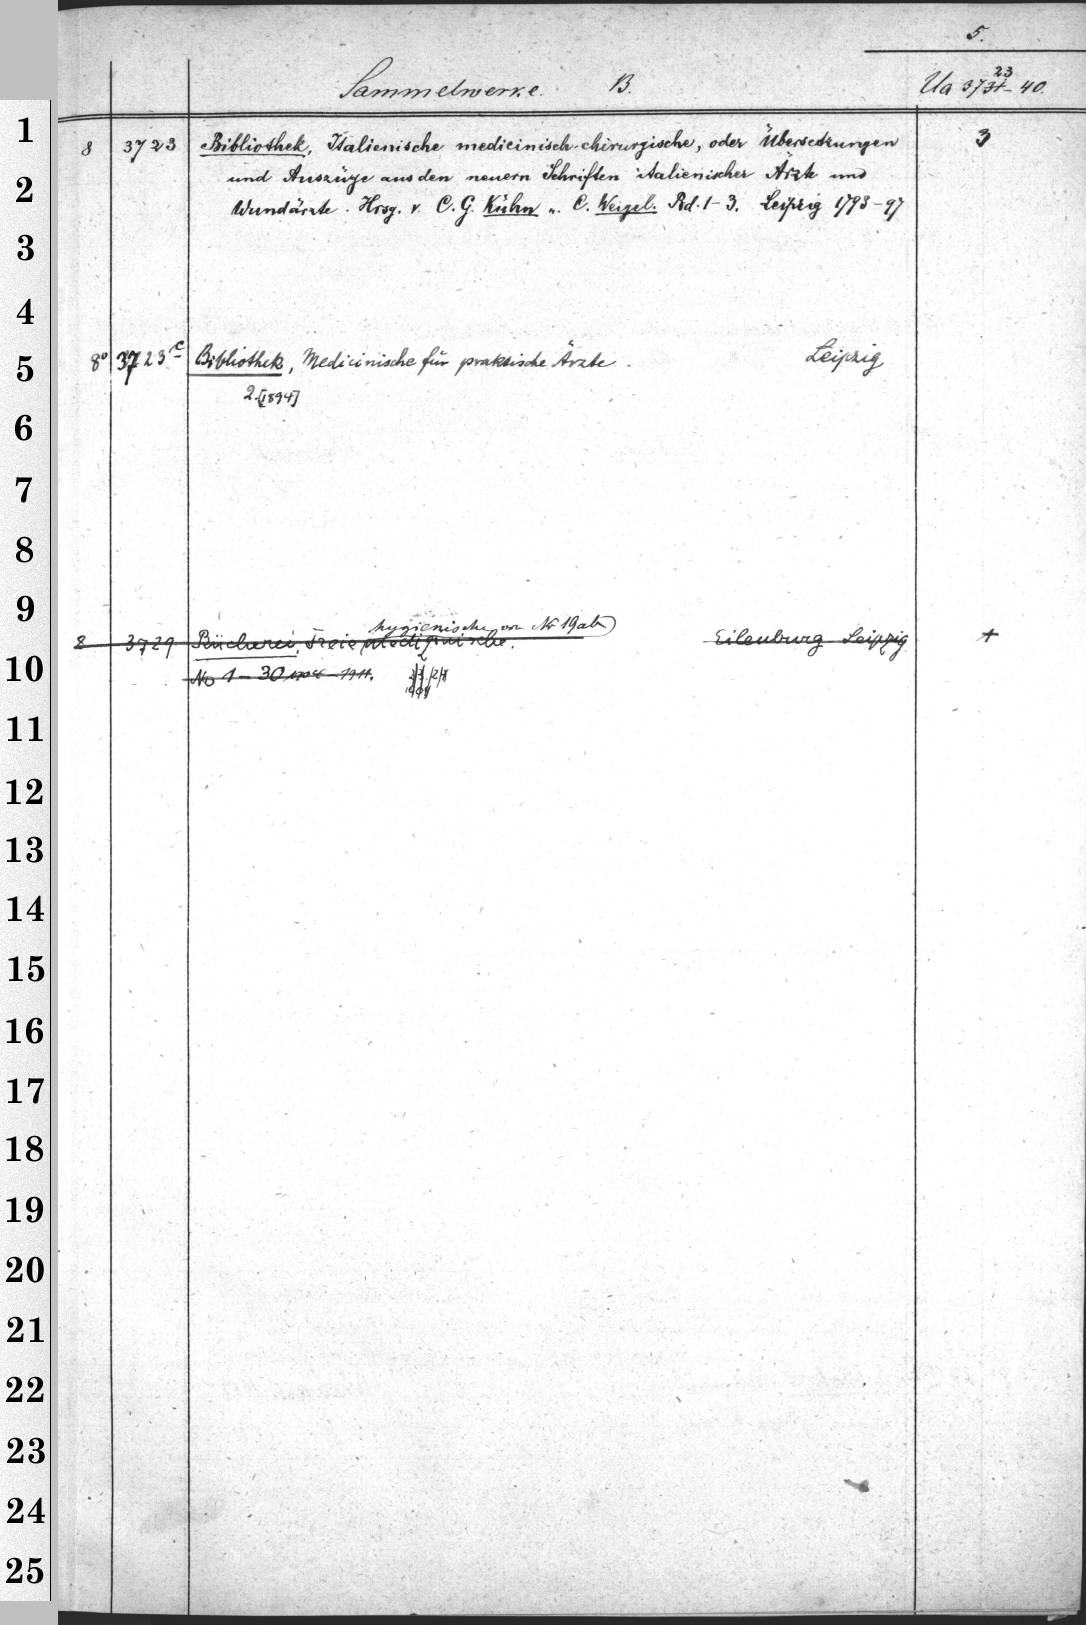 5.
Sammelwerke. B. Ua 3731-40.
23
8 3723 Bibliothek, Italienische medicinisch-chirurgische, oder Übersetzungen 3
und Auszüge aus den neuern Schriften italienischer Ärzte und
Wundärzte. Hrsg. v. C. G. Kühn u. C. Weigel. Bd. 1-3. Leipzig 1793-97
8° 3723c Bibliothek, Medicinische für praktische Ärzte. Leipzig
2.[1894]
hygienische von No 19 ab
8 3729 Bücherei, Freie medizinische. Eilenburg Leipzig +
No 1-30 -1911.
1
2
3
4
5
6
7
8
9
10
11
12
13
14
15
16
17
18
19
20
21
22
23
24
25